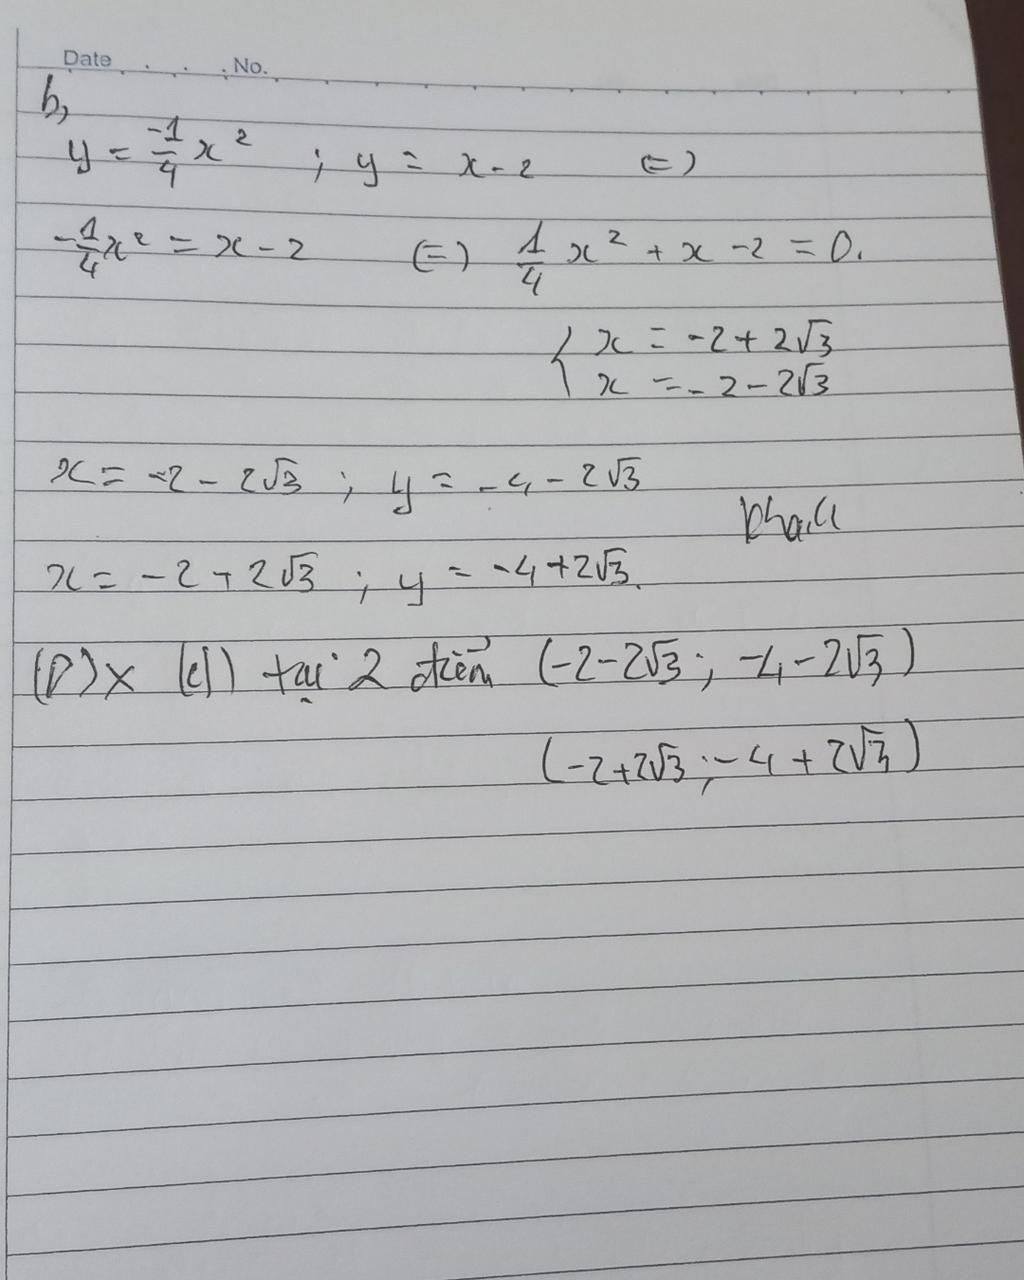 Date . . . . No.
b,
y = -1/4 x² ; y = x - 2 (=)
-1/4 x² = x - 2 (=) 1/4 x² + x - 2 = 0.
{ x = -2 + 2√3
x = -2 - 2√3
x = -2 - 2√3 ; y = -4 - 2√3
x = -2 + 2√3 ; y = -4 + 2√3.
(P) x (d) tại 2 điểm (-2 - 2√3 ; -4 - 2√3)
(-2 + 2√3 ; -4 + 2√3)